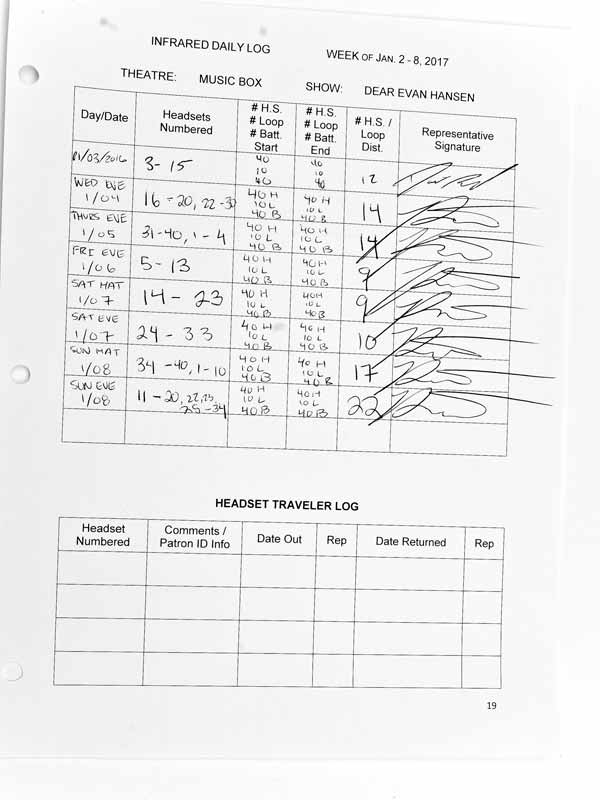 INFRARED DAILY LOG
WEEK OF JAN. 2 - 8, 2017
THEATRE: MUSIC BOX SHOW: DEAR EVAN HANSEN
Day/Date Headsets Numbered # H.S. # Loop # Batt. Start # H.S. # Loop # Batt. End # H.S. / Loop Dist. Representative Signature
01/03/2016 3-15 40 10 40 40 10 40 12
WED EVE 1/04 16-20, 22-30 40 H 10 L 40 B 40 H 10 L 40 B 14
THURS EVE 1/05 31-40, 1-4 40 H 10 L 40 B 40 H 10 L 40 B 14
FRI EVE 1/06 5-13 40 H 10 L 40 B 40 H 10 L 40 B 9
SAT MAT 1/07 14-23 40 H 10 L 40 B 40 H 10 L 40 B 9
SAT EVE 1/07 24-33 40 H 10 L 40 B 40 H 10 L 40 B 10
SUN MAT 1/08 34-40, 1-10 40 H 10 L 40 B 40 H 10 L 40 B 17
SUN EVE 1/08 11-20, 22, 23, 25-34 40 H 10 L 40 B 40 H 10 L 40 B 22
HEADSET TRAVELER LOG
Headset Numbered Comments / Patron ID Info Date Out Rep Date Returned Rep
19